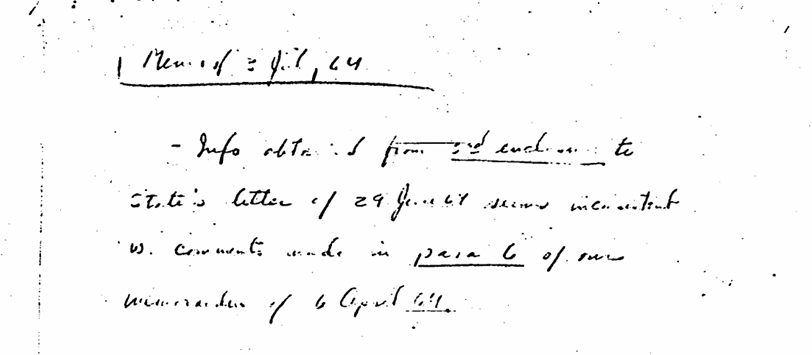 Memo of 3 Jul, 64
- Info obtained from 3rd enclosure to
State's letter of 29 June 64 seems inconsistent
w. comments made in para 6 of our
memorandum of 6 April 64.